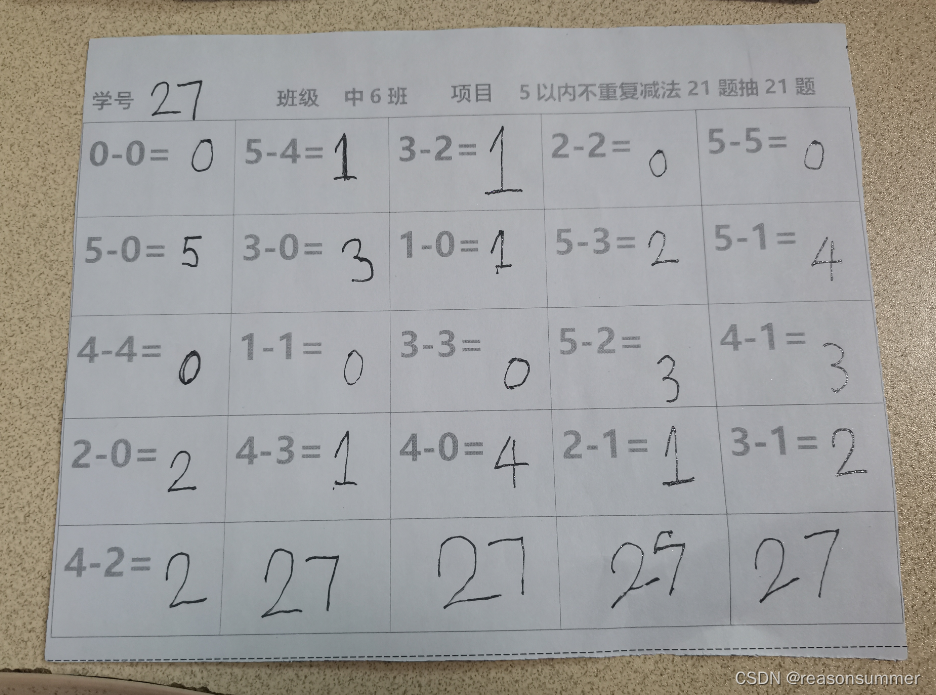 学号 27 班级 中6班 项目 5以内不重复减法21题抽21题
0-0= 0 5-4= 1 3-2= 1 2-2= 0 5-5= 0
5-0= 5 3-0= 3 1-0= 1 5-3= 2 5-1= 4
4-4= 0 1-1= 0 3-3= 0 5-2= 3 4-1= 3
2-0= 2 4-3= 1 4-0= 4 2-1= 1 3-1= 2
4-2= 2 27 27 27 27
CSDN @reasonsummer